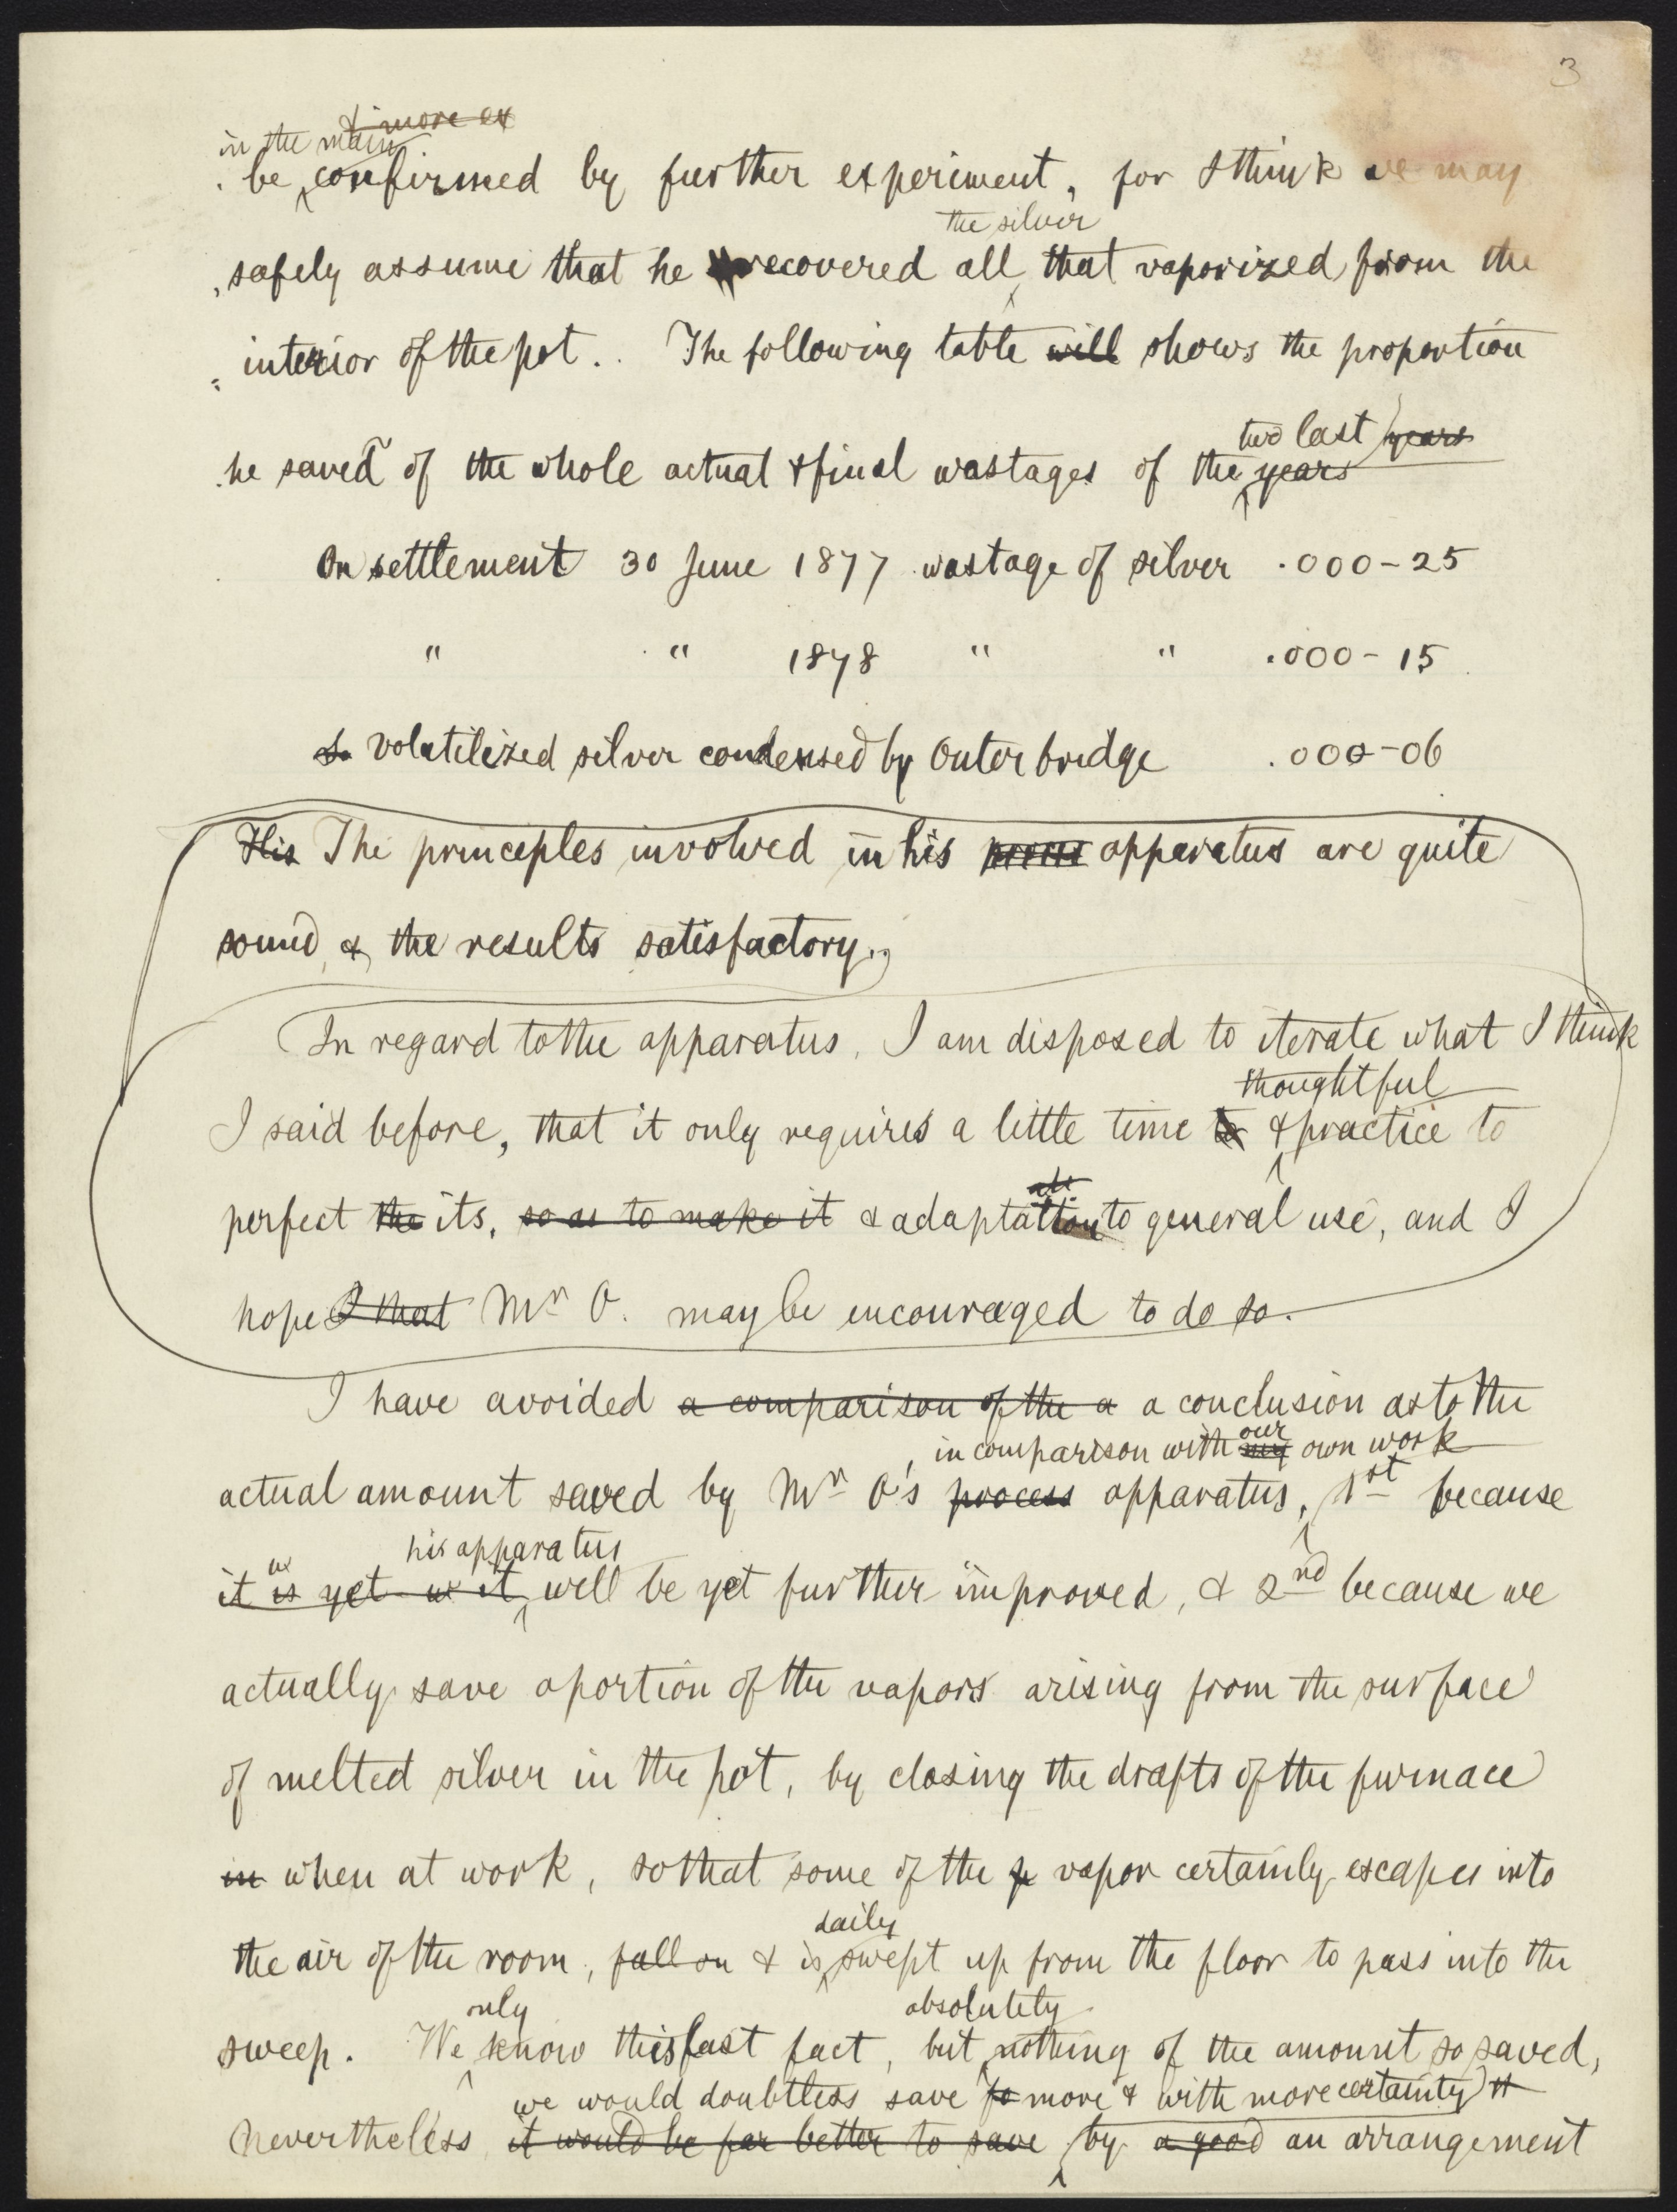 3
& more ex
in the main
be confirmed by further experiment, for I think we may
the silver
safely assume that he recovered all that vaporized from the
interior of the pot. The following table will shows the proportion
two last years
he saved of the whole actual & final wastages of the years
On settlement 30 June 1877 wastage of silver .000-25
" " 1878 " " .000-15
volatilized silver condensed by Outerbridge .000-06
His The principles involved in his apparatus are quite
sound, & the results satisfactory.
In regard to the apparatus, I am disposed to iterate what I think
thoughtful
I said before, that it only requires a little time to & practice to
perfect the its, so as to make it & adaptation to general use, and I
hope I that Mr O. may be encouraged to do so.
I have avoided a comparison of the a a conclusion as to the
our
, in comparison with my own work
actual amount saved by Mr O's process apparatus, 1st because
his apparatus
it is yet it will be yet further improved, & 2nd because we
actually save a portion of the vapors arising from the surface
of melted silver in the pot, by closing the drafts of the furnace
in when at work, so that some of the vapor certainly escapes into
daily
the air of the room, fall on & is swept up from the floor to pass into the
only absolutely
sweep. We know this last fact, but nothing of the amount so saved,
we would doubtless save more & with more certainty it
Nevertheless it would be far better to save by a good an arrangement